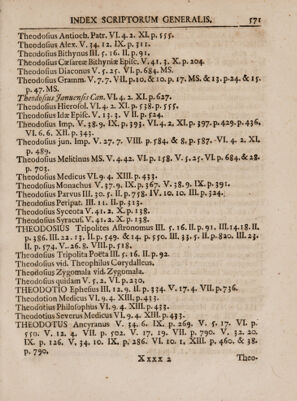 INDEX SCRIPTORUM GENERALIS. 571
Theodosius Antioch. Patr. VI. 4. 2. XI. p. 555.
Theodosius Alex. V. 34. 12. IX. p. 311.
Theodosius Bithynus III. 5. 16. II. p. 91.
Theodosius Cæsareæ Bithyniæ Episc. V. 41. 3. X. p. 204.
Theodosius Diaconus V. 5. 25. VI. p. 684. MS.
Theodosius Gramm. V. 7. 7. VII. p. 10. & 10. p. 17. MS. & 13. p. 24. & 15.
p. 47. MS.
Theodosius Januensis Can. VI. 4. 2. XI. p. 627.
Theodosius Hierosol. VI. 4. 2. XI. p. 538. p. 555.
Theodosius Idæ Episc. V. 13. 3. V II. p. 524.
Theodosius Imp. V. 38. 9. IX. p. 393. VI. 4. 2. XI. p. 397. p. 429. p. 436.
VI. 6. 6. XII. p. 343.
Theodosius jun. Imp. V. 27. 7. VIII. p. 584. & 8. p. 587. VI. 4. 2. XI.
p. 489.
Theodosius Melitinus MS. V. 4. 42. VI. p. 158. V. 5. 25. VI. p. 684. & 28.
p. 703.
Theodosius Medicus VI. 9. 4. XIII. p. 433.
Theodosius Monachus V. 37. 9. IX. p. 367. V. 38. 9. IX. p. 391.
Theodosius Parvus III. 30. 5. II. p. 758. IV. 10. 10. III. p. 324.
Theodosius Peripat. III. 11. II. p. 313.
Theodosius Syceota V. 41. 2. X. p. 138.
Theodosius Syracus. V. 41. 2. X. p. 138.
THEODOSIUS Tripolites Astronomus III. 5. 16. II. p. 91. III. 14. 18. II.
p. 386. III. 22. 13. II. p. 549. & 14. p. 550. III. 33. 5. II. p. 820. III. 23.
II. p. 574. V. 26. 8. VIII. p. 518.
Theodosius Tripolita Poëta III. 5. 16. II. p. 92.
Theodosius vid. Theophilus Corydalleus.
Theodosius Zygomala vid. Zygomala.
Theodosius quidam V. 5. 2. VI. p. 230.
THEODOTIO Ephesius III. 12. 9. II. p. 334. V. 17. 4. VII. p. 736.
Theodotion Medicus VI. 9. 4. XIII. p. 433.
Theodotius Philosophus VI. 9. 4. XIII. p. 433.
Theodotius Severus Medicus VI. 9. 4. XIII. p. 433.
THEODOTUS Ancyranus V. 34. 6. IX. p. 269. V. 5. 17. VI. p.
550. V. 12. 4. VII. p. 502. V. 17. 19. VII. p. 790. V. 32. 20.
IX. p. 126. V. 34. 10. IX. p. 286. VI. 10. 1. XIII. p. 460. & 38.
p. 790.
Xxxx 2 Theo-